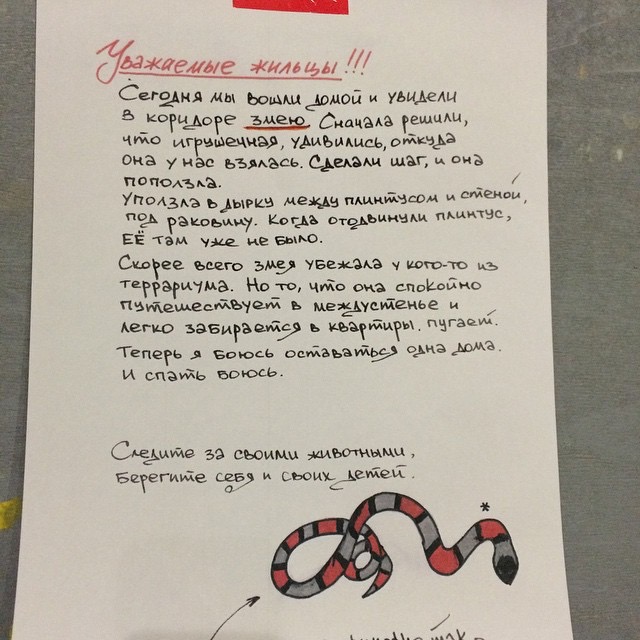 Уважаемые жильцы!!!
Сегодня мы вошли домой и увидели
в коридоре змею. Сначала решили,
что игрушечная, удивились, откуда
она у нас взялась. Сделали шаг, и она
поползла.
Уползла в дырку между плинтусом и стеной,
под раковину. Когда отодвинули плинтус,
ЕЁ там уже не было.
Скорее всего змея убежала у кого-то из
террариума. Но то, что она спокойно
путешествует в междустенье и
легко забирается в квартиры, пугает.
Теперь я боюсь оставаться одна дома.
И спать боюсь.
Следите за своими животными,
Берегите себя и своих детей.
*